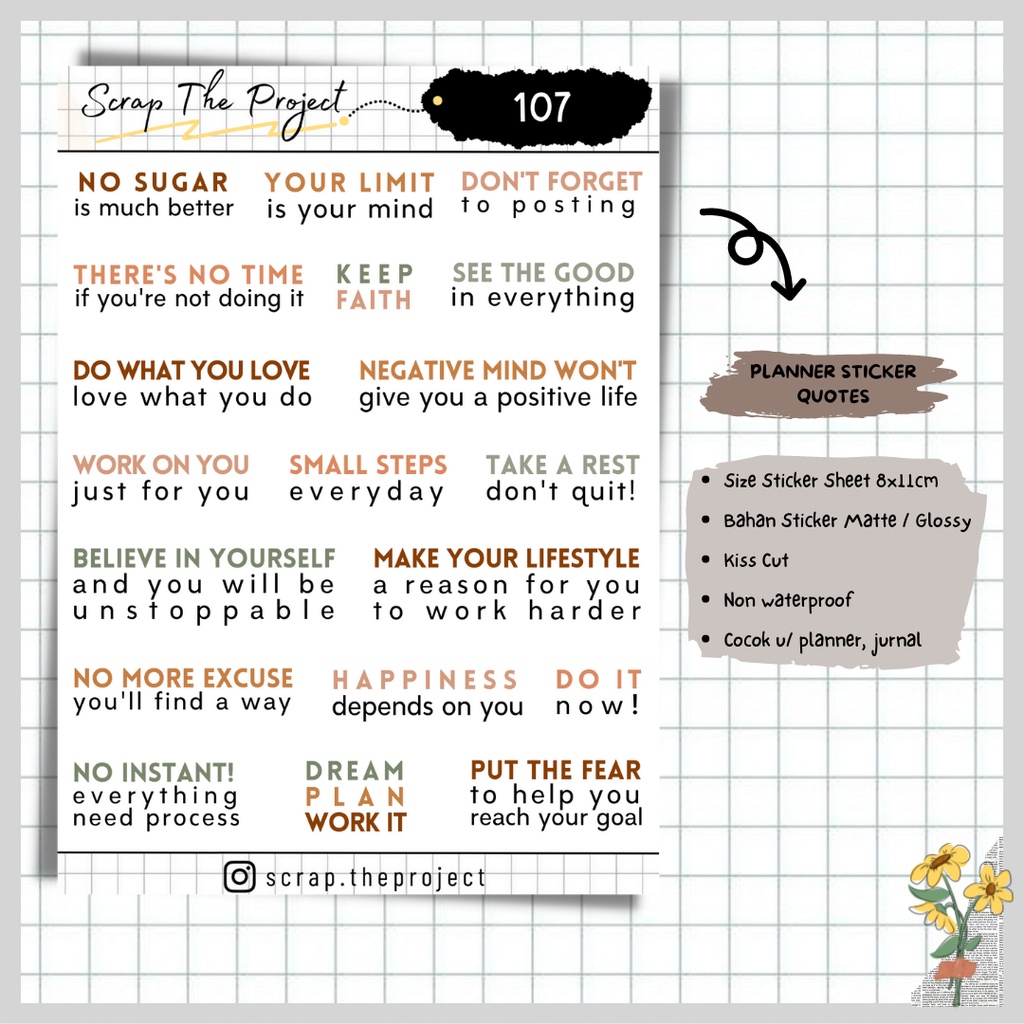 Scrap The Project
107
NO SUGAR
is much better
YOUR LIMIT
is your mind
DON'T FORGET
to posting
THERE'S NO TIME
if you're not doing it
KEEP
FAITH
SEE THE GOOD
in everything
DO WHAT YOU LOVE
love what you do
NEGATIVE MIND WON'T
give you a positive life
WORK ON YOU
just for you
SMALL STEPS
everyday
TAKE A REST
don't quit!
BELIEVE IN YOURSELF
and you will be
unstoppable
MAKE YOUR LIFESTYLE
a reason for you
to work harder
NO MORE EXCUSE
you'll find a way
HAPPINESS
depends on you
DO IT
now!
NO INSTANT!
everything
need process
DREAM
PLAN
WORK IT
PUT THE FEAR
to help you
reach your goal
scrap.theproject
PLANNER STICKER
QUOTES
• Size Sticker Sheet 8x11cm
• Bahan Sticker Matte / Glossy
• Kiss Cut
• Non waterproof
• Cocok u/ planner, jurnal